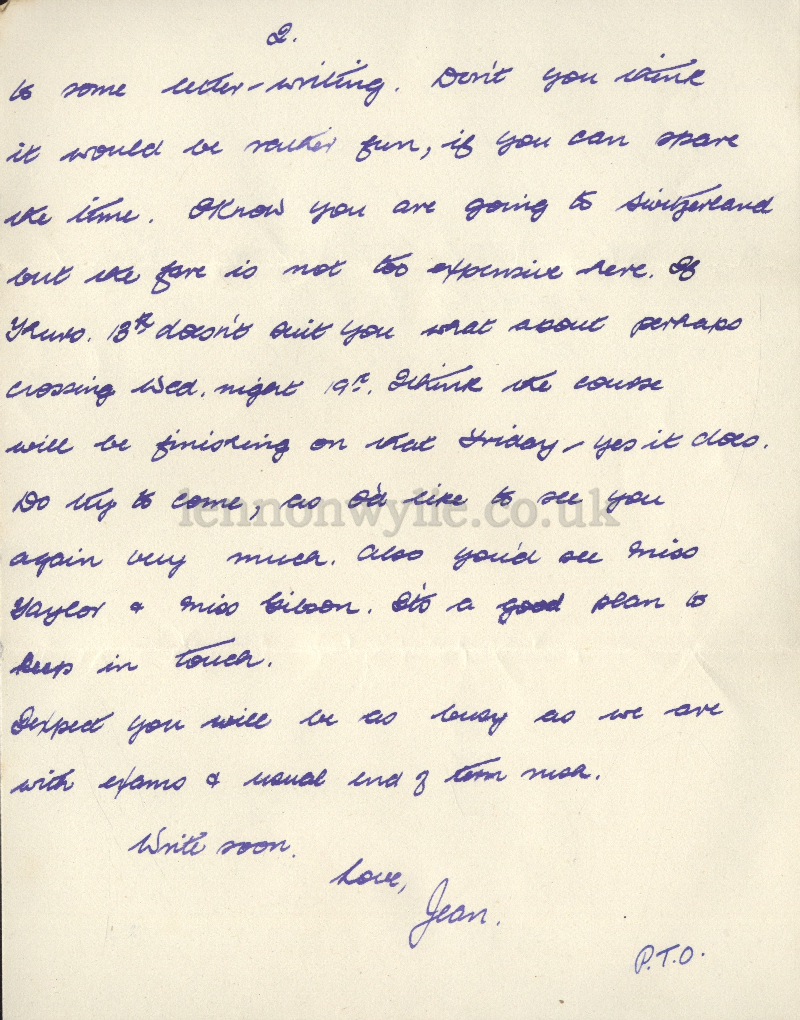 2.
to some letter-writing. Don't you think
it would be rather fun, if you can spare
the time. I know you are going to Switzerland
but the fare is not too expensive here. If
Thurs. 13th doesn't suit you what about perhaps
crossing Wed. night 19th. I think the course
will be finishing on that Friday - yes it does.
Do try to come, as I'd like to see you
lennonwylie.co.uk
again very much. Also you'd see Miss
Taylor & Miss Gibson. It's a good plan to
keep in touch.
I expect you will be as busy as we are
with exams & usual end of term rush.
Write soon.
Love,
Jean.
P.T.O.